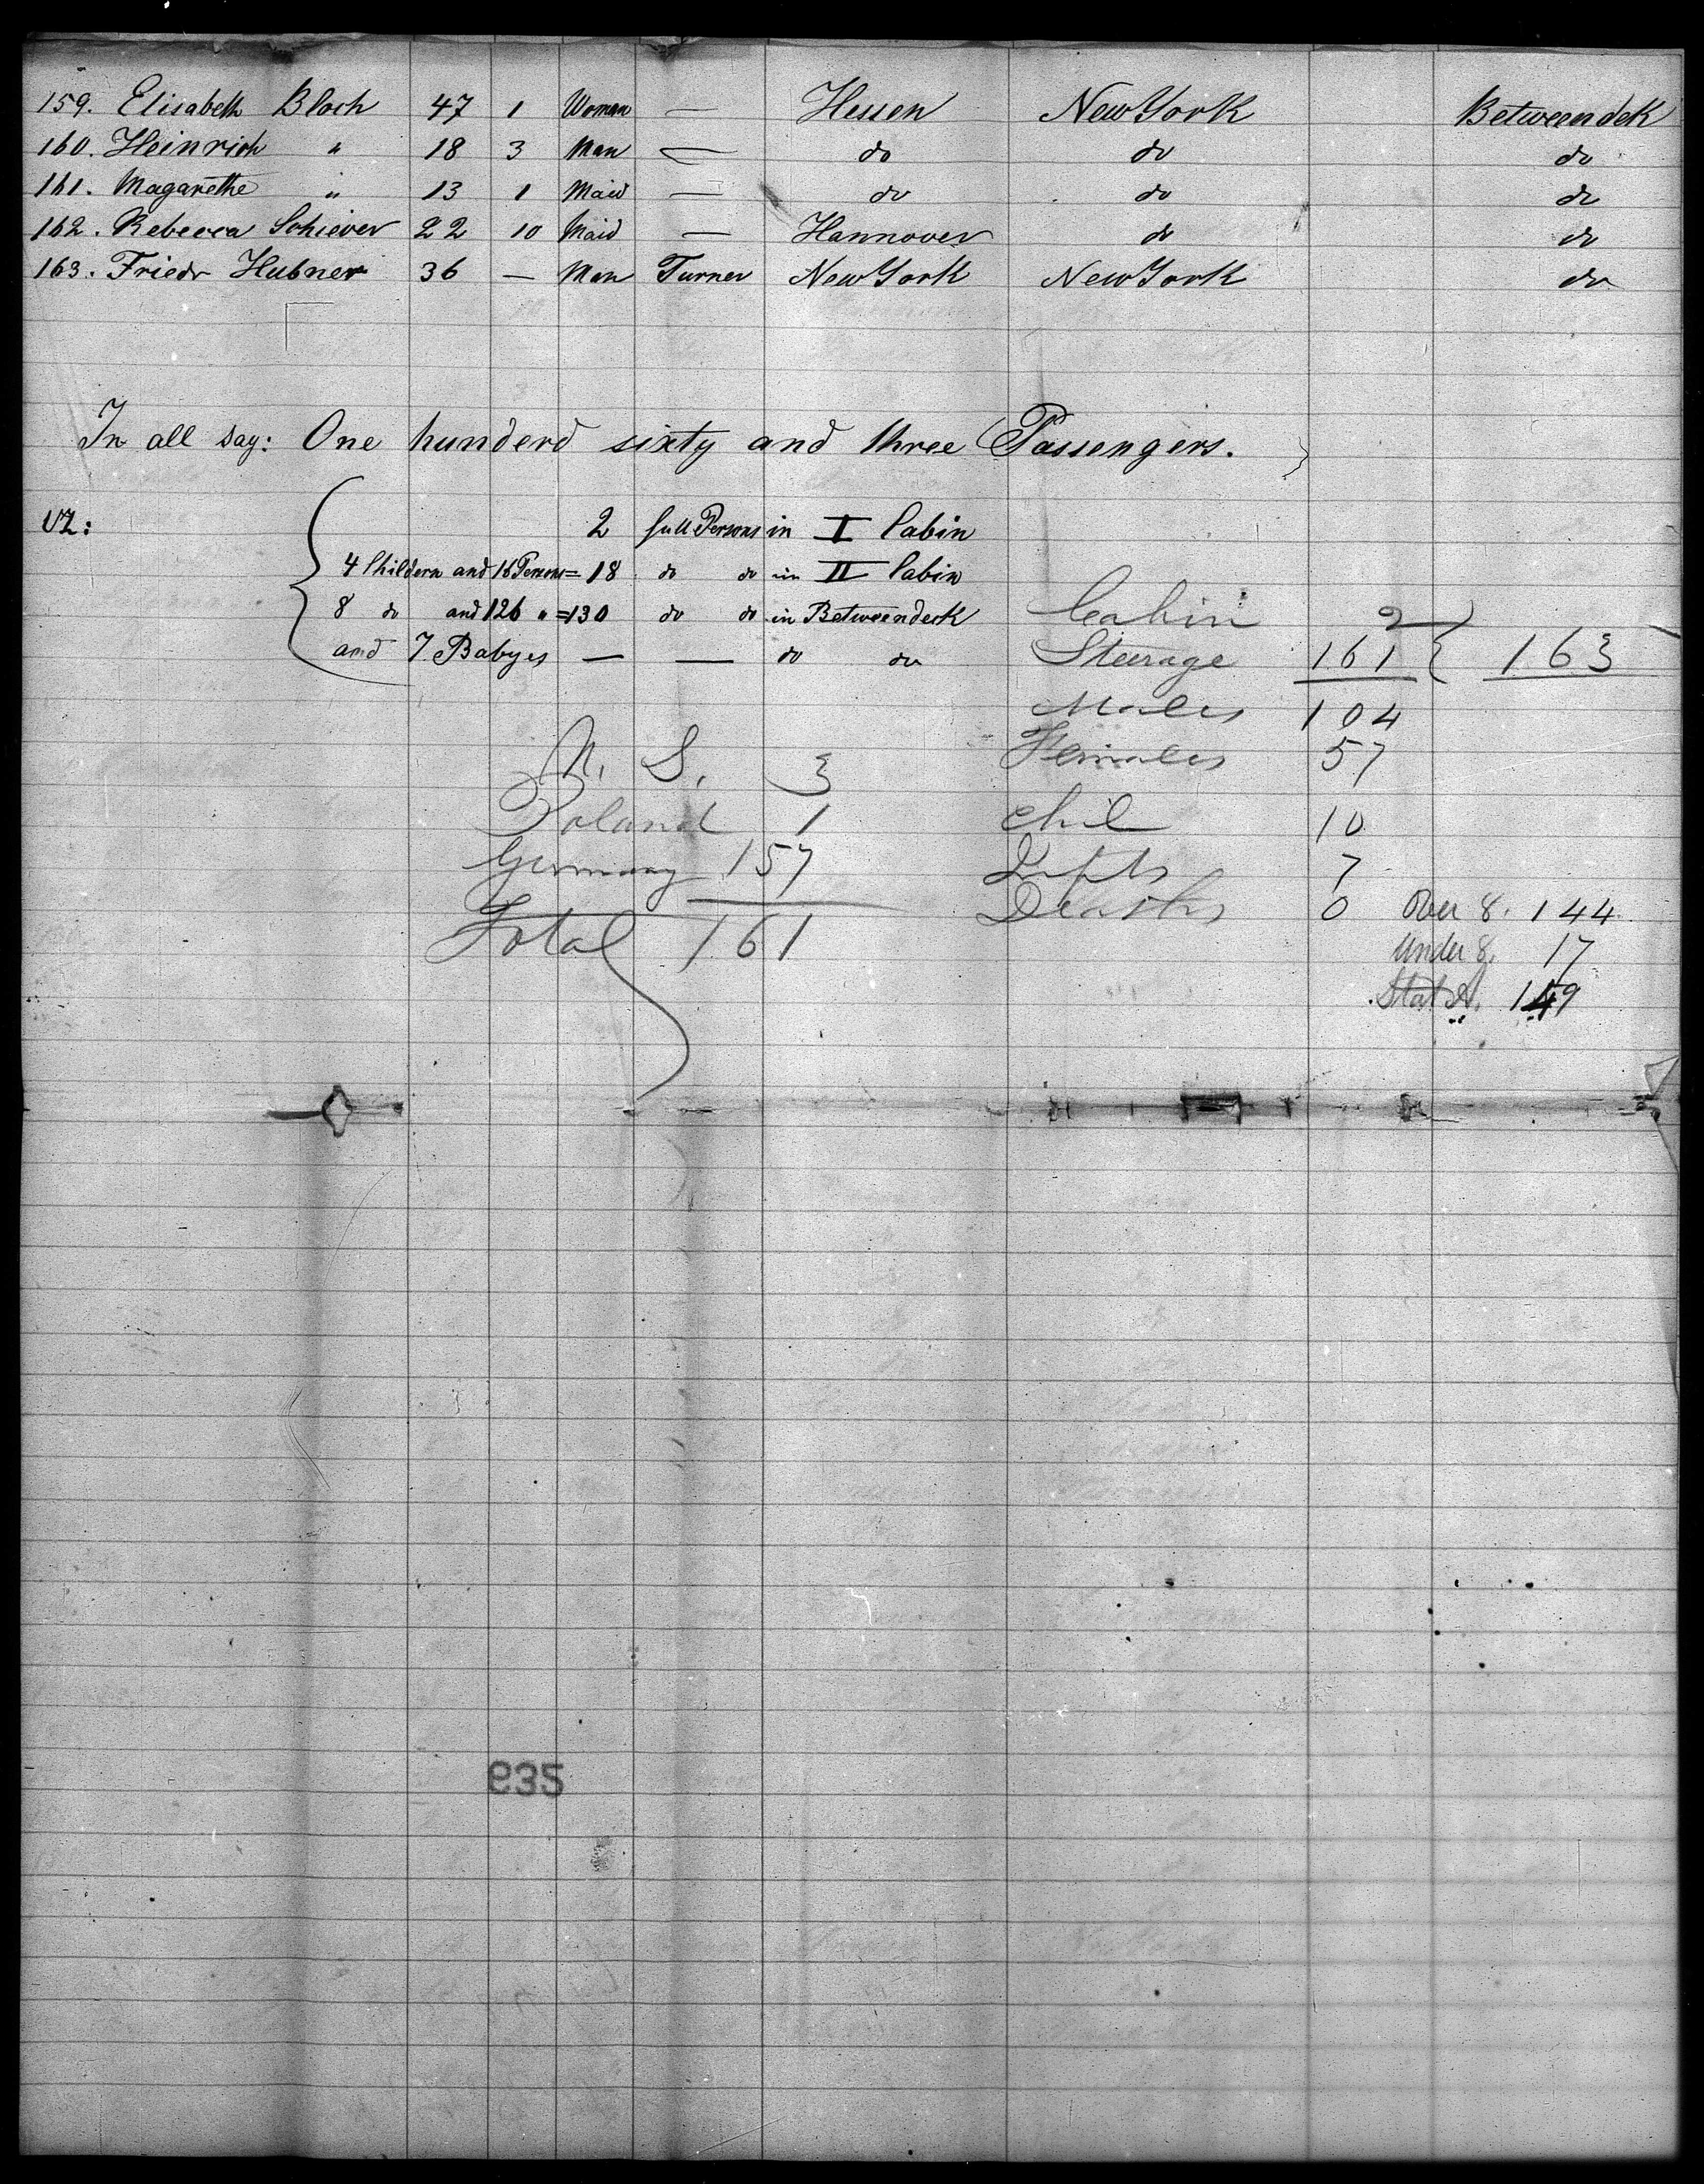 159. Elisabeth Bloch 47 1 Woman — Hessen New York Betweendek
160. Heinrich " 18 3 Man — do do do
161. Magarethe " 13 1 Maid — do do do
162. Rebecca Schiever 22 10 Maid — Hannover do do
163. Friedr Hubner 36 — Man Turner New York New York do
In all say: One hunderd sixty and three Passengers.
VZ:
2 full Persons in I Cabin
4 Childern and 16 Persons = 18 do do in II Cabin
8 do and 126 " = 130 do do in Betweendeck
and 7 Babyes — — do do
Cabin 2
Steerage 161 } 163
Males 104
Females 57
Chil 10
Infts 7
Deaths 0
U. S. 3
Poland 1
Germany 157
Total 161
Over 8. 144
Under 8. 17
Stat A.
932